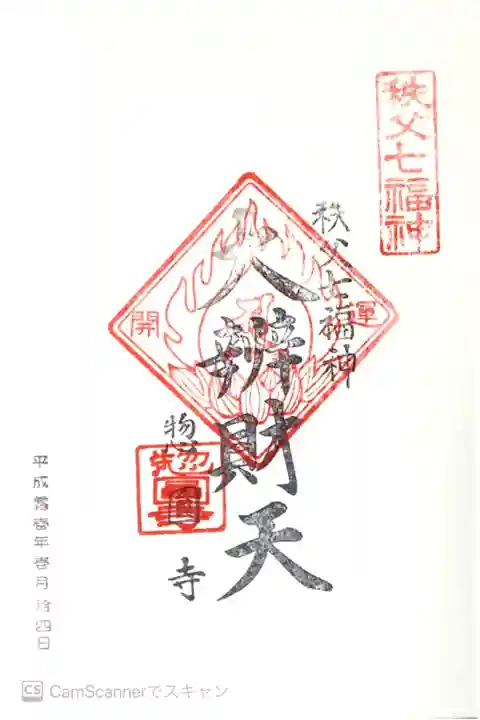 秩父七福神
秩父七福神
大辨財天
開運
惣圓寺
年壱月拾四日
平成
CS CamScannerでスキャン